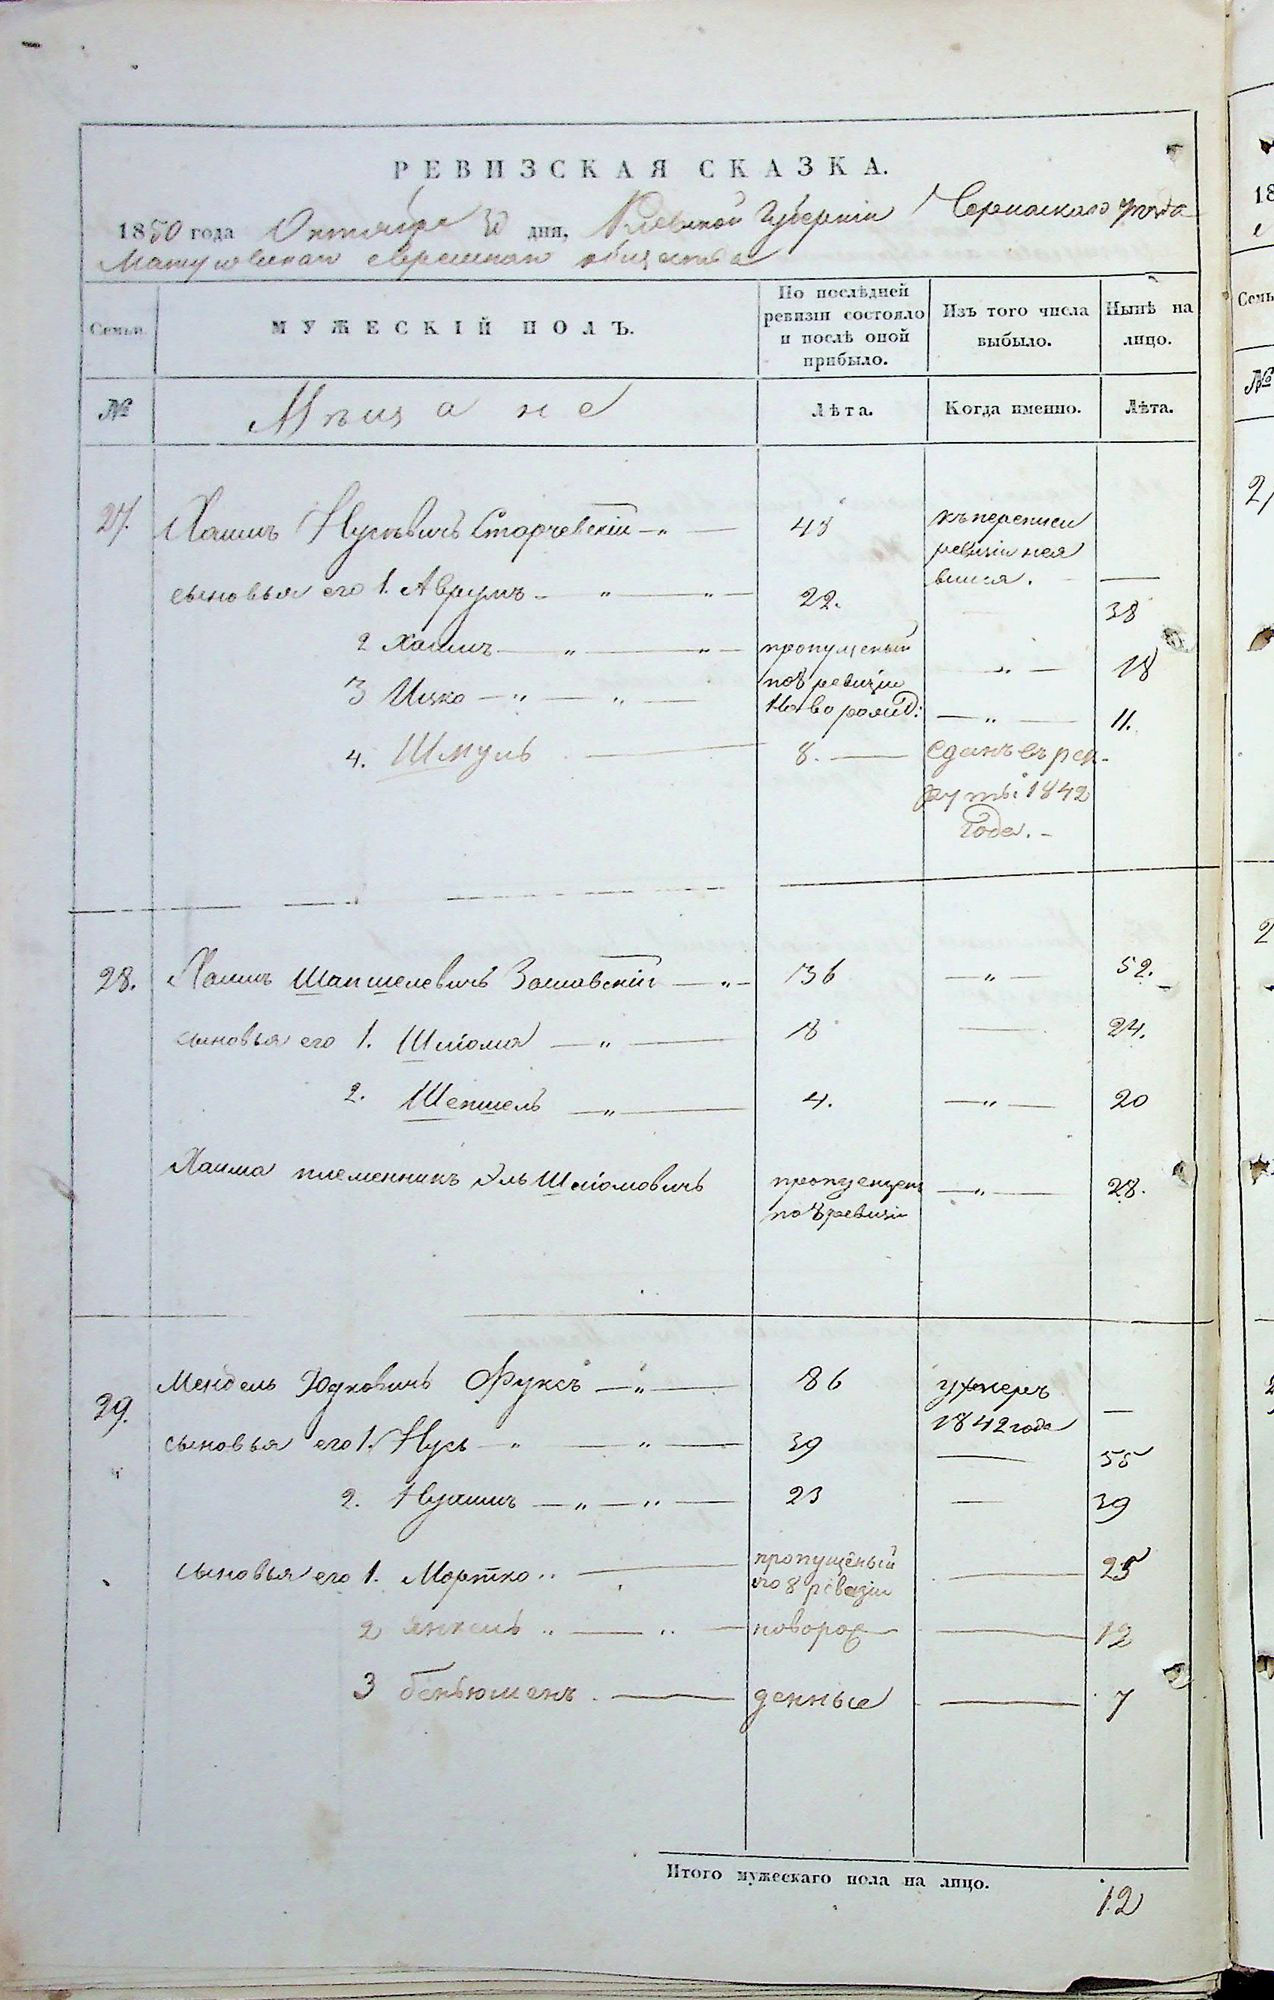 РЕВИЗСКАЯ СКАЗКА.
1850 года Октября 30 дня, Киевской Губернии Черкаскаго уезда
Матусовскаго еврейскаго общества
Семьи.
МУЖЕСКІЙ ПОЛЪ.
По послѣдней ревизіи состояло и послѣ оной прибыло.
Изъ того числа выбыло.
Нынѣ на лицо.
№
Мѣщане
Лѣта.
Когда именно.
Лѣта.
27. Хаимъ Нусевичъ Старчевскій 45 къ переписи ревизіи неявился. —
сыновья его 1. Аврумъ 22. 38
2 Хаимъ пропущеный по 8 ревизіи 18
3 Ицко 11.
4. Шмуль 8. сданъ въ рекруты 1842 года.
28. Хаимъ Шапшелевичъ Заславскій 36 52.
сыновья его 1. Шліома 8 24.
2. Шепшель 4. 20
Хаима племенникъ Эль Шліомовичъ пропущенъ по 8 ревизіи 28.
29. Мендель Юдковичъ Фуксъ 86 умеръ 1842 года —
сыновья его 1. Нусь 39 55
2. 23 39
сыновья его 1. Мортко пропущеный по 8 ревизіи 25
2 Янкель новорож 12
3 Беньюменъ денные 7
Итого мужескаго пола на лицо. 12